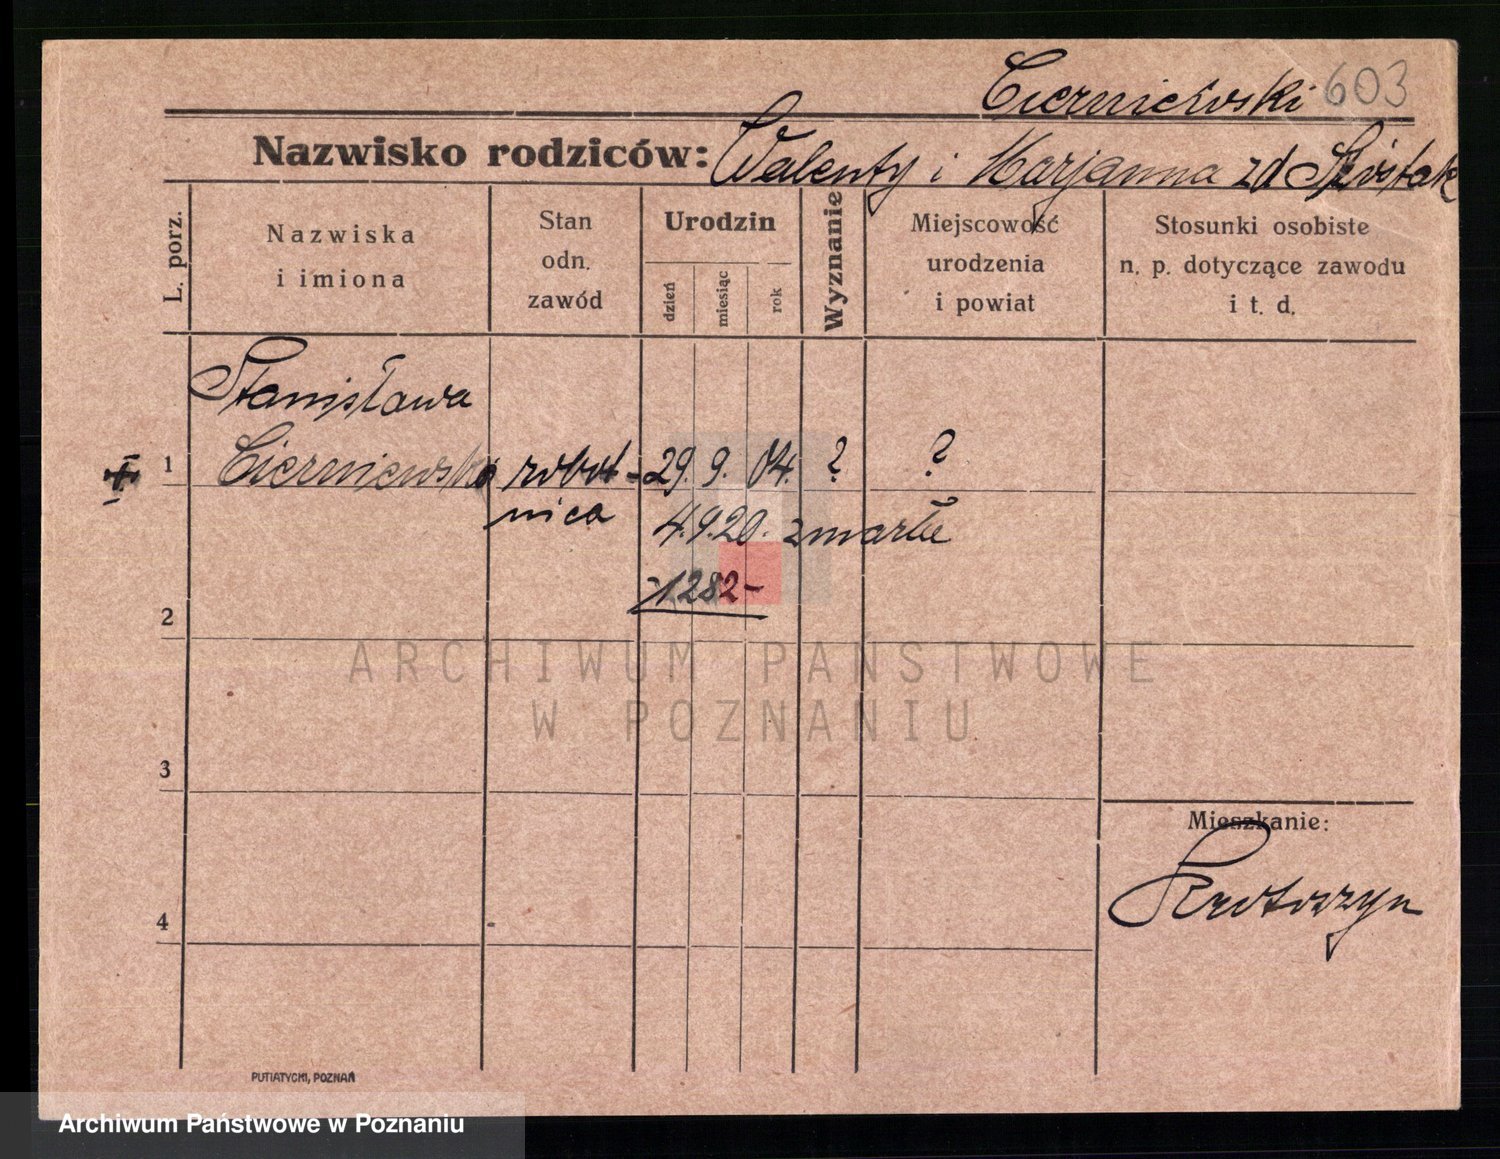 Cierniewski 603
Nazwisko rodziców: Walenty i Marjanna zd
L. porz.
Nazwiska
i imiona
Stan
odn.
zawód
Urodzin
dzień
miesiąc
rok
Wyznanie
Miejscowość
urodzenia
i powiat
Stosunki osobiste
n. p. dotyczące zawodu
i t. d.
Stanisława
1 Cierniewska robot- 29. 9. 04. ? ?
nica 4.9.20. zmarła
1282-
2
ARCHIWUM PAŃSTWOWE
W POZNANIU
3
Mieszkanie:
Krotoszyn
4
PUTIATYCKI, POZNAŃ
Archiwum Państwowe w Poznaniu